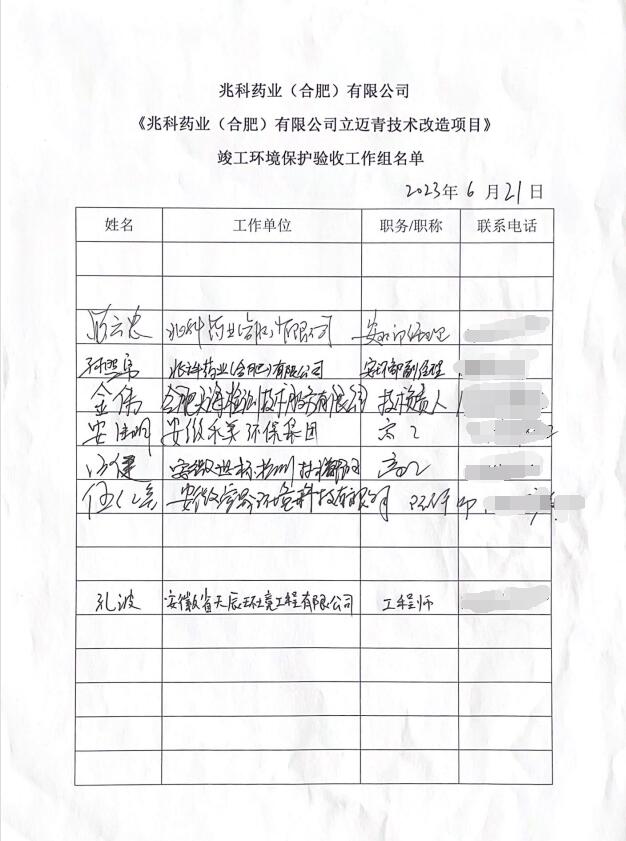 兆科药业（合肥）有限公司
《兆科药业（合肥）有限公司立迈青技术改造项目》
竣工环境保护验收工作组名单
2023年 6 月 21 日
姓名 工作单位 职务/职称 联系电话
云忠 兆科药业(合肥)有限公司
兆科药业(合肥)有限公司 安环部副经理
金伟 合肥 海检测技术服务有限公司 技术负责人
安 明 安徽禾美环保集团 高工
健 安徽 技 高工
伍 安徽 环境科技有限公司
孔波 安徽省天辰环境工程有限公司 工程师